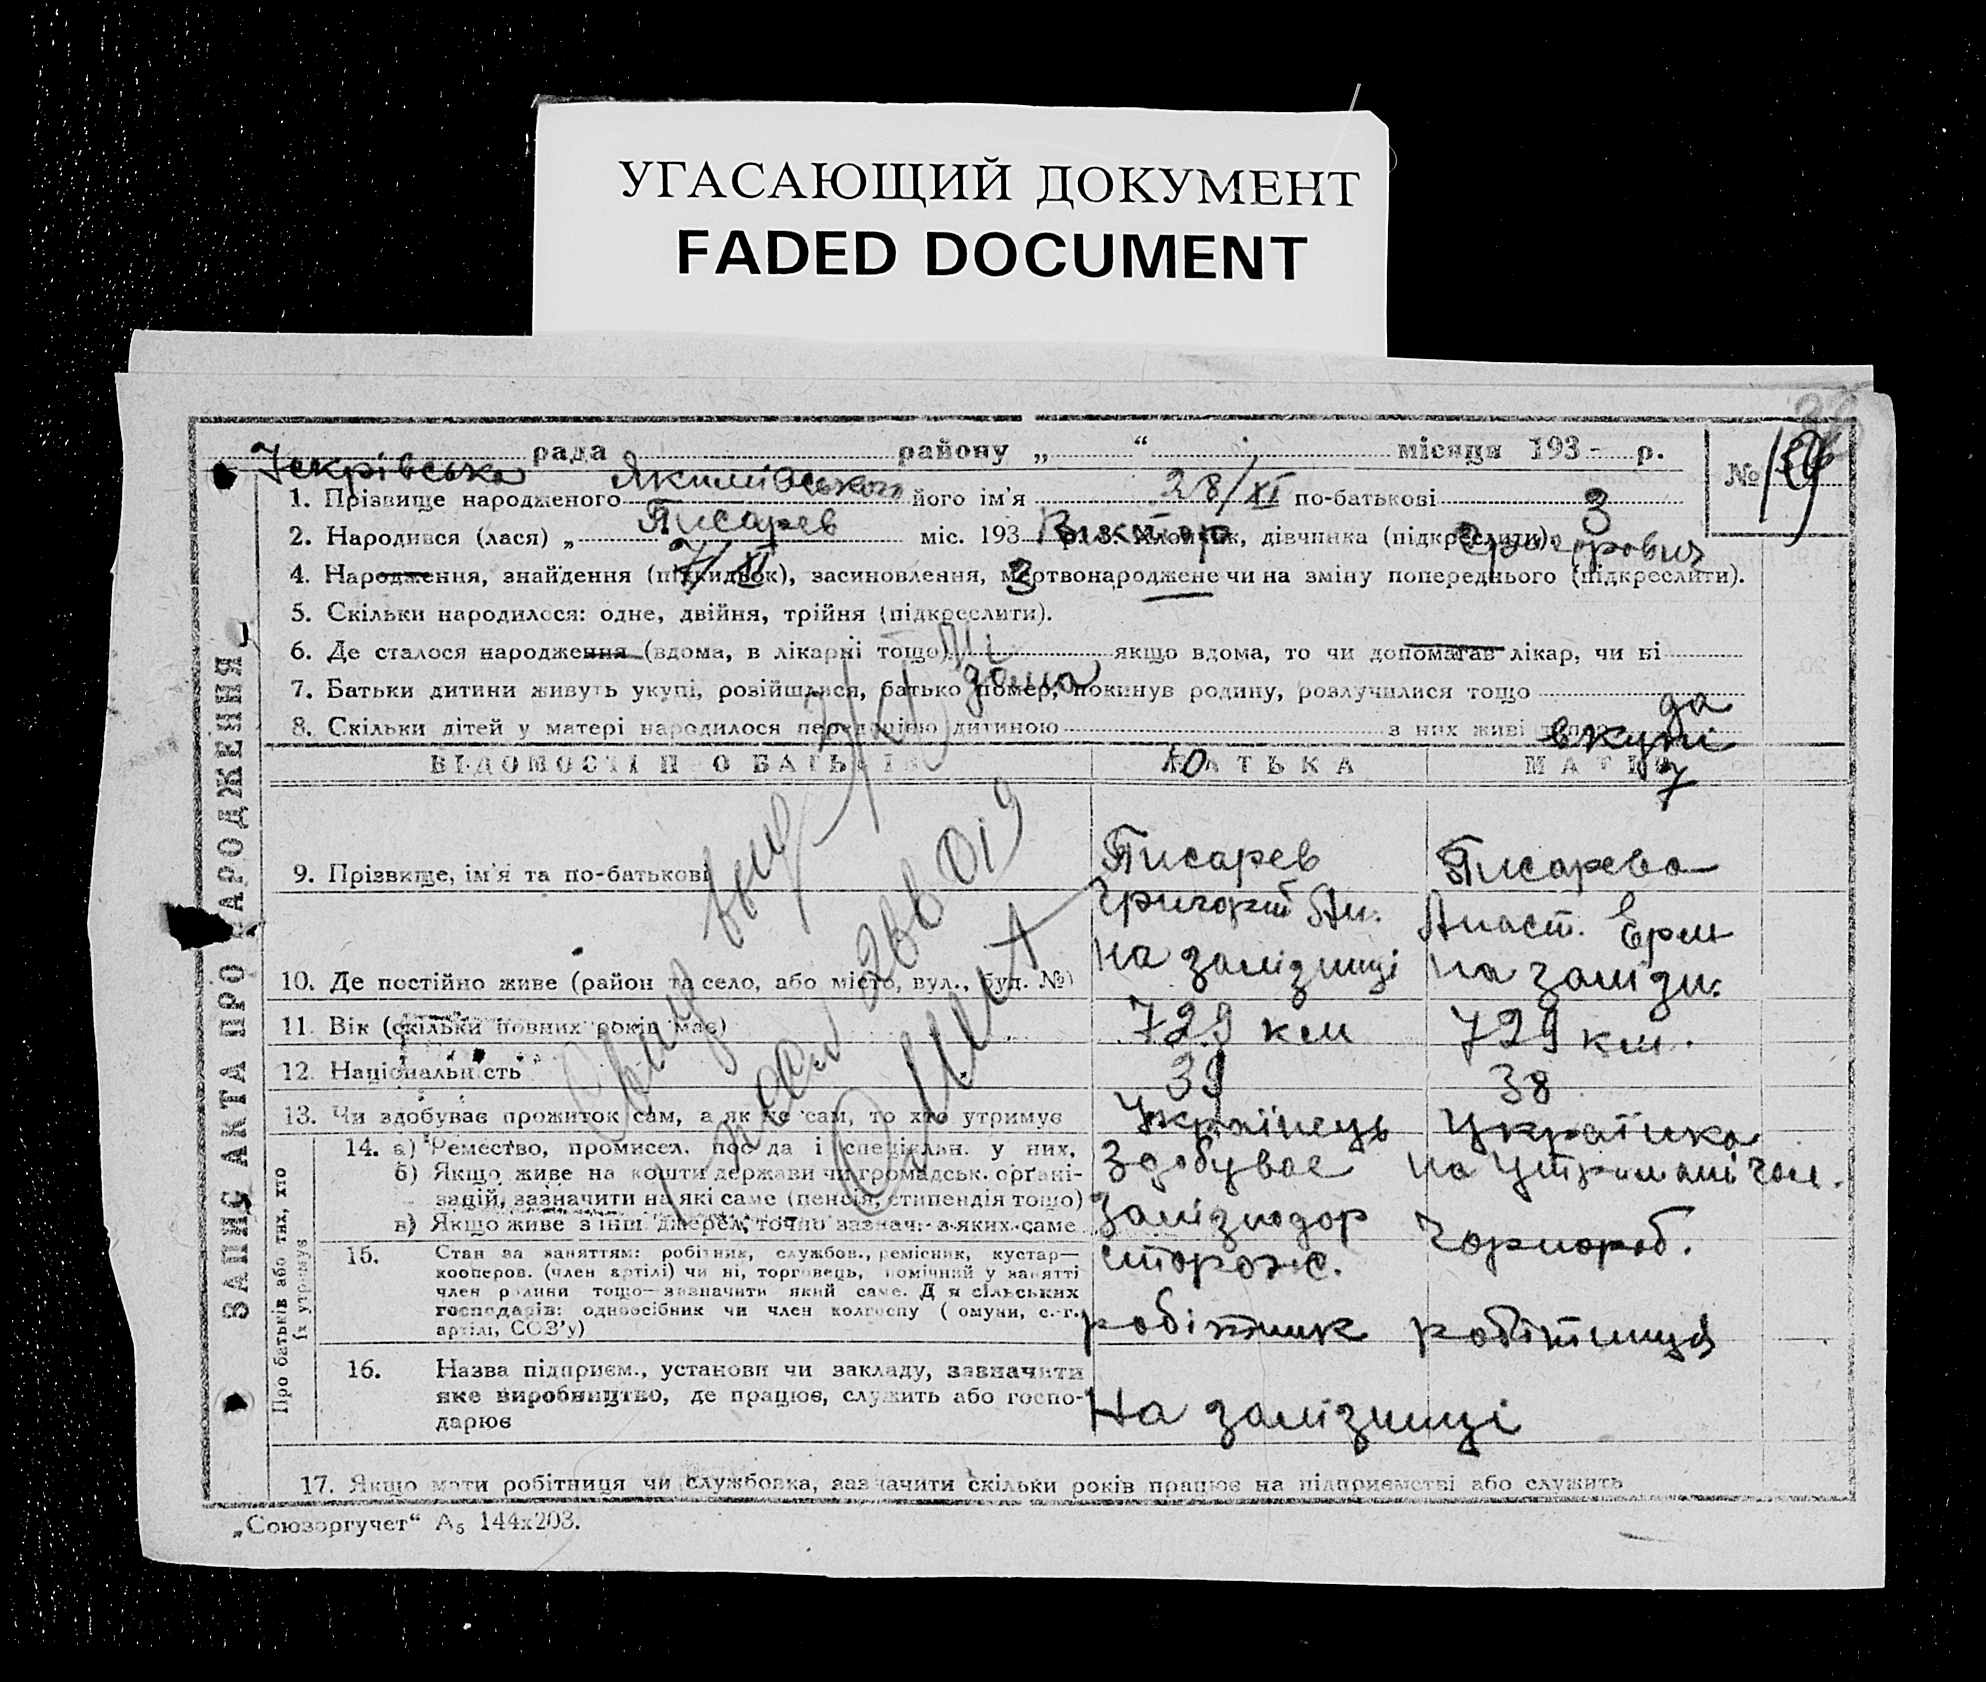 УГАСАЮЩИЙ ДОКУМЕНТ
FADED DOCUMENT
рада району „ “ місяця 193 - р.
№
Якимівського 28/XI 3
1. Прізвище народженого його ім'я по-батькові
Писарев Віктор Григорович
2. Народився (лася) „ міс. 193 дівчинка (підкреслити).
7/XI 3
4. Народження, знайдення (підкидьок), засиновлення, мертвонароджене чи на зміну попереднього (підкреслити).
5. Скільки народилося: одне, двійня, трійня (підкреслити).
6. Де сталося народження (вдома, в лікарні тощо) якщо вдома, то чи допомагав лікар, чи ні
дома
7. Батьки дитини живуть укупі, розійшлися, батько помер, покинув родину, розлучилися тощо
да
8. Скільки дітей у матері народилося перед цією дитиною з них живі
вкупі
ВІДОМОСТІ ПРО БАТЬКІВ БАТЬКА МАТИ
10 7
ЗАПИС АКТА ПРО НАРОДЖЕННЯ
9. Прізвище, ім'я та по-батькові
Писарев Писарева
Григорій Ан. Анаст. Ерм
10. Де постійно живе (район та село, або місто, вул., буд. №)
на залізниці на залізн.
11. Вік (скільки повних років має)
729 км 729 км.
12. Національність
39 38
13. Чи здобуває прожиток сам, а як не сам, то хто утримує
Українець Українка
Про батьків або тих, хто їх утримує
14. а) Ремество, промисел, посада і спеціальн. у них,
б) Якщо живе на кошти держави чи громадськ. орґані-
зацій, зазначити на які саме (пенсія, стипендія тощо)
в) Якщо живе з інш. джерел, точно зазнач. з яких саме
Здобуває на утриманні чол.
Залізнодор Чорнороб.
сторож.
15. Стан за заняттям: робітник, службов., ремісник, кустар—
кооперов. (член артілі) чи ні, торговець, помічний у занятті
член родини тощо—зазначити який саме. Для сільських
господарів: одноосібник чи член колгоспу (комуни, с.-г.
артілі, СОЗ'у)
робітник робітниця
16. Назва підприєм., установи чи закладу, зазначити
яке виробництво, де працює, служить або госпо-
дарює
На залізниці
17. Якщо мати робітниця чи службовка, зазначити скільки років працює на підприємстві або служить
„Союзоргучет“ А₅ 144х203.